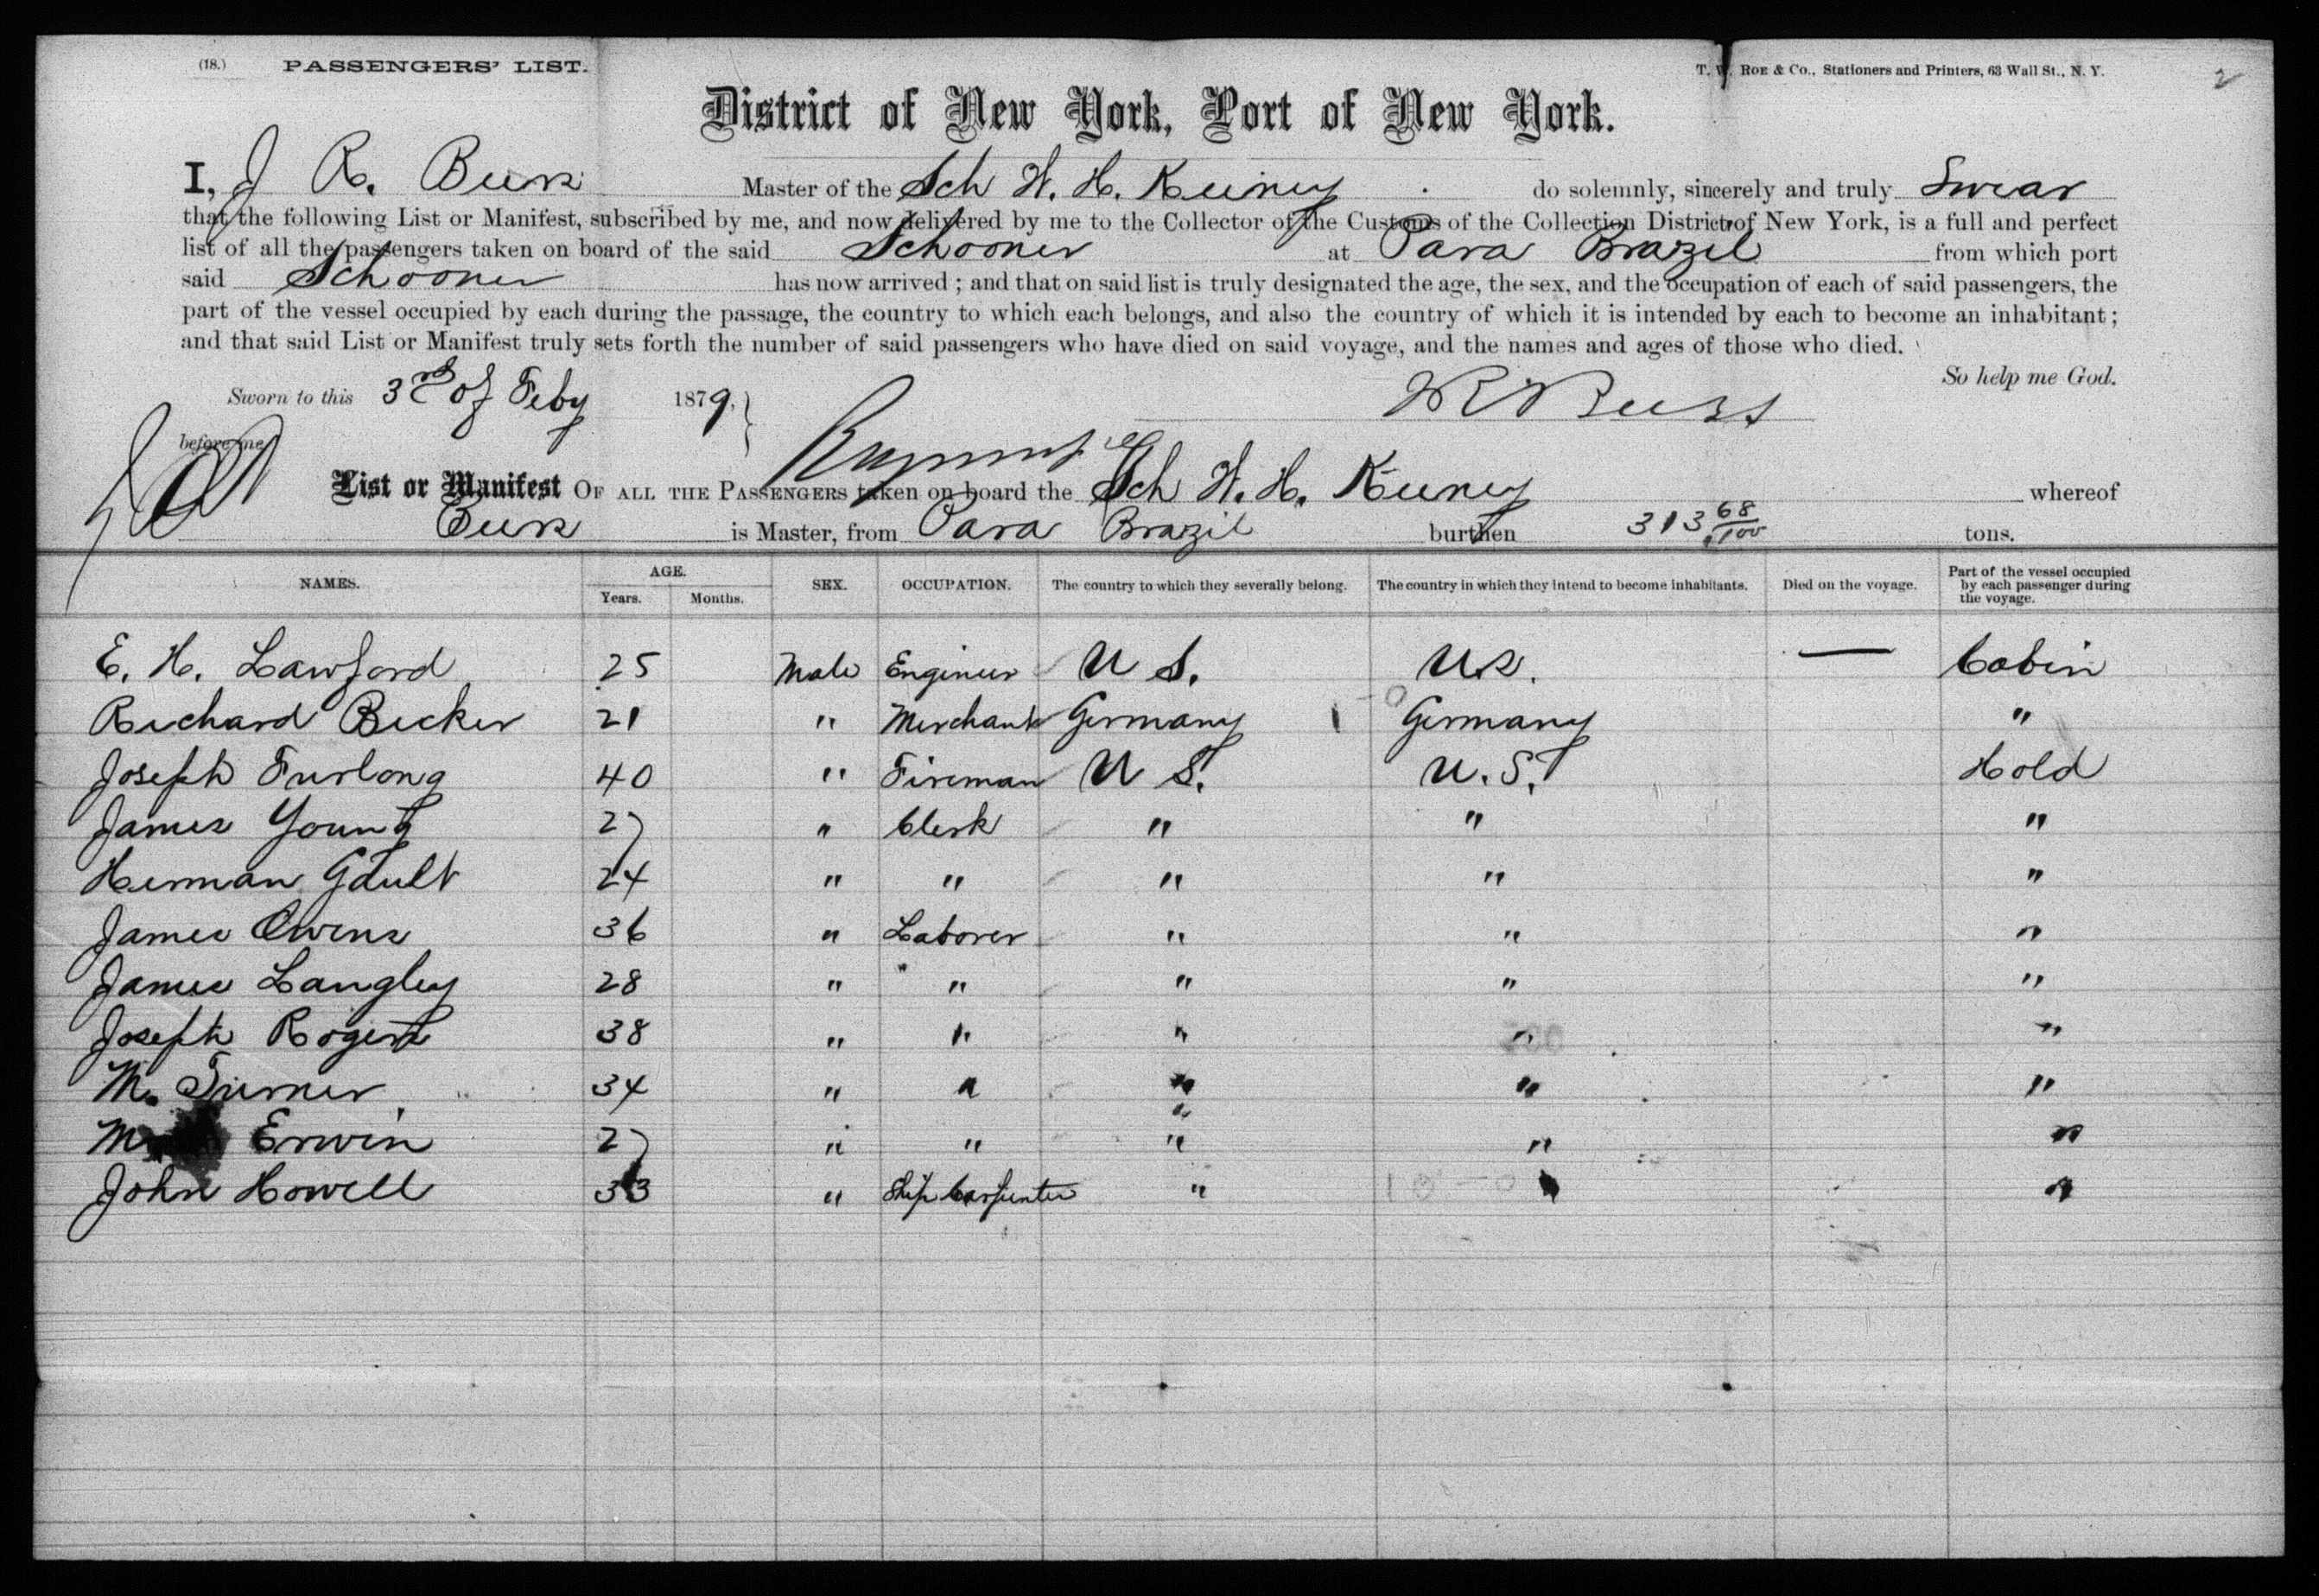 (18.) PASSENGERS' LIST. T. W. ROE & Co., Stationers and Printers, 63 Wall St., N. Y. 2
District of New York, Port of New York.
I, J R. Master of the Sch W. H. do solemnly, sincerely and truly Swear
that the following List or Manifest, subscribed by me, and now delivered by me to the Collector of the Customs of the Collection District of New York, is a full and perfect
list of all the passengers taken on board of the said Schooner at Para Brazil from which port
said Schooner has now arrived; and that on said list is truly designated the age, the sex, and the occupation of each of said passengers, the
part of the vessel occupied by each during the passage, the country to which each belongs, and also the country of which it is intended by each to become an inhabitant;
and that said List or Manifest truly sets forth the number of said passengers who have died on said voyage, and the names and ages of those who died.
So help me God.
Sworn to this 3rd of Feby 1879,
before me
List or Manifest OF ALL THE PASSENGERS taken on board the Sch W. H. whereof
is Master, from Para Brazil burthen 313 68/100 tons.
NAMES. AGE. Years. Months. SEX. OCCUPATION. The country to which they severally belong. The country in which they intend to become inhabitants. Died on the voyage. Part of the vessel occupied by each passenger during the voyage.
E. H. Lawford 25 Male Engineer U S. U.S. — Cabin
Richard Becker 21 " Merchant Germany Germany "
Joseph Furlong 40 " Fireman U S. U.S. Hold
James Young 27 " Clerk " " "
Herman Gault 24 " " " " "
James Owens 36 " Laborer " " "
James Langley 28 " " " " "
Joseph Rogers 38 " " " " "
M. Turner 34 " " " " "
Erwin 27 " " " " "
John Howell 33 " Ship Carpenter " " "